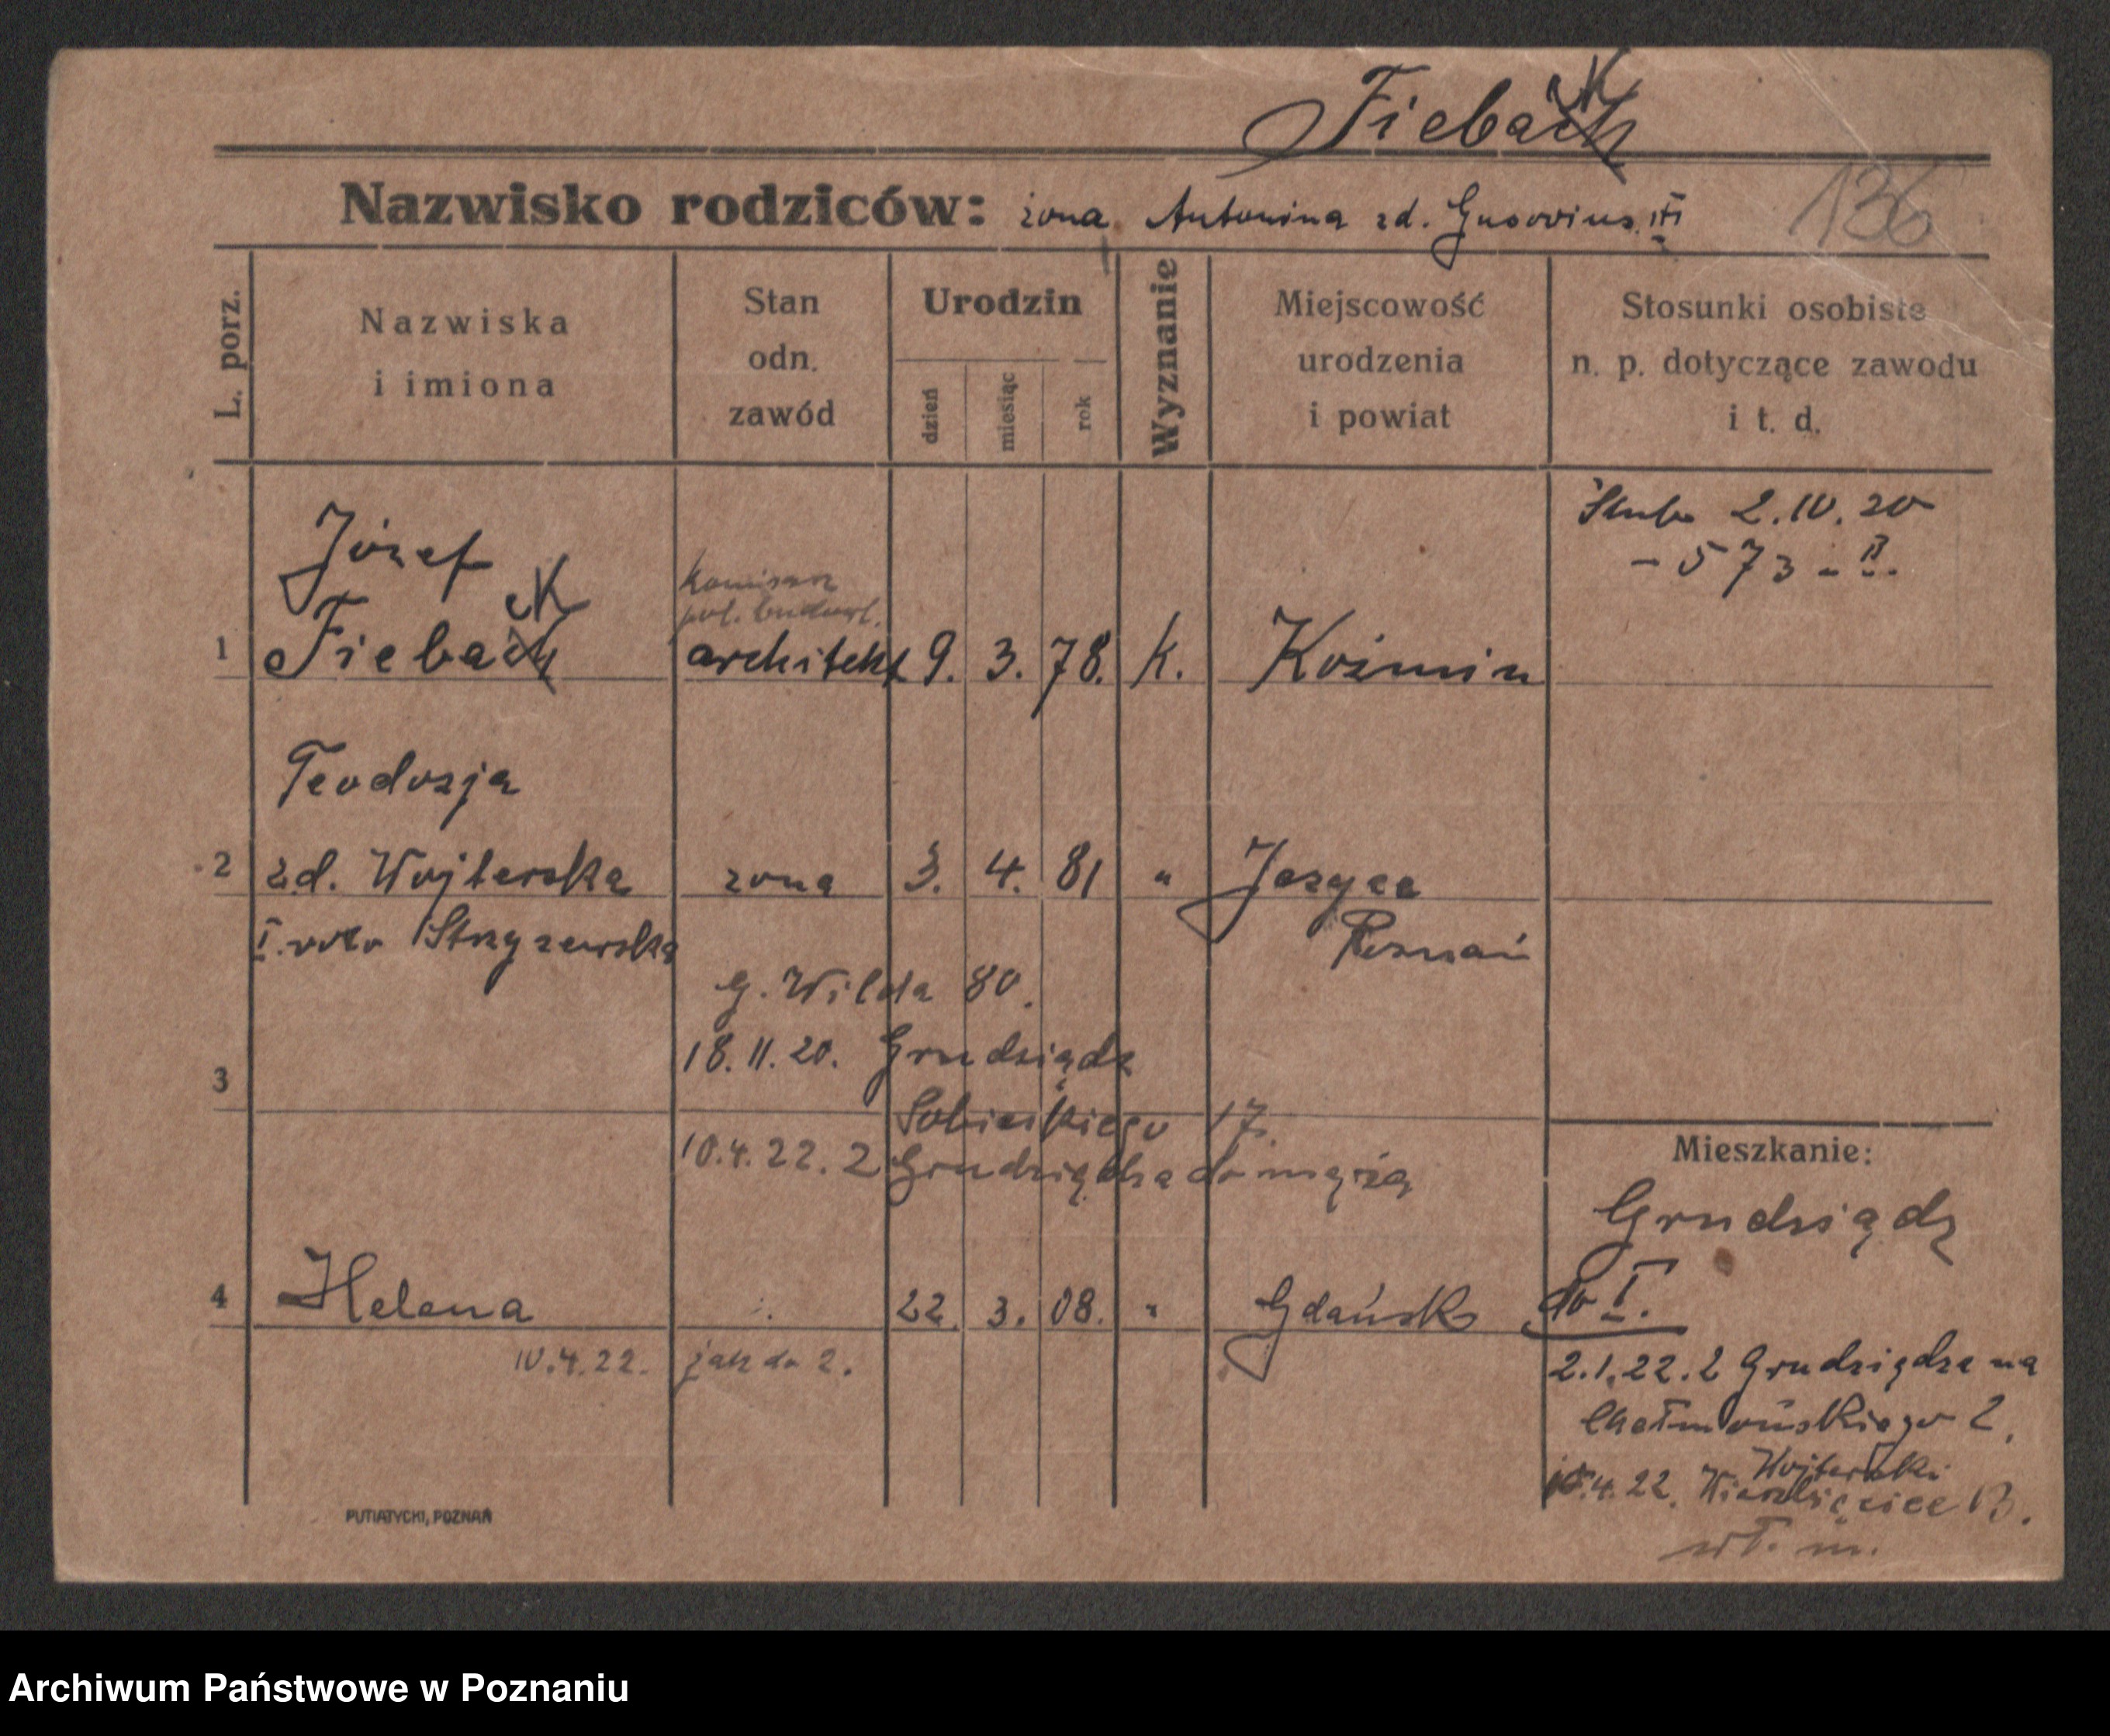 Fiebach K
Nazwisko rodziców: żona Antonina zd. 136
L. porz.
Nazwiska i imiona
Stan odn. zawód
Urodzin
dzień
miesiąc
rok
Wyznanie
Miejscowość urodzenia i powiat
Stosunki osobiste n. p. dotyczące zawodu i t. d.
Ślub 2.IV.20
- 573 - II.
Józef
K
komisarz
pol. budowl.
1 Fiebach architekt 9. 3. 78. k. Koźmin
Teodozja
2 zd. Wojterska żona 3. 4. 81 " Jezyce
I. voto Strzyzewska Poznań
G. Wilda 80.
18.11.20. Grudziądz
3
Sobieskiego 17.
10.4.22. z Grudziądza do męża
Mieszkanie:
Grudziądz
4 Helena 22. 3. 08. " Gdańsk
do I.
10.4.22. jak do 2.
2.1.22. z Grudziądza na
Chełmońskiego 2.
Wojterski
10.4.22. Wierzbięcice 13.
wł. m.
PUTIATYCKI, POZNAŃ
Archiwum Państwowe w Poznaniu